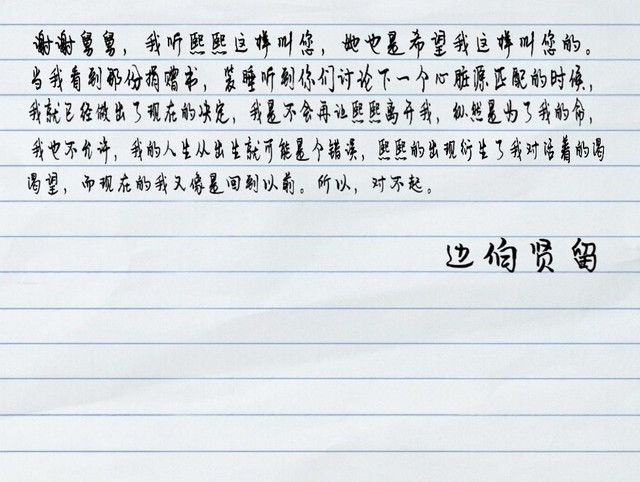 谢谢舅舅，我听熙熙这样叫您，她也是希望我这样叫您的。
当我看到那份捐赠书，装睡听到你们讨论下一个心脏源匹配的时候，
我就已经做出了现在的决定，我是不会再让熙熙离开我，纵然是为了我的命，
我也不允许，我的人生从出生就可能是个错误，熙熙的出现衍生了我对活着的渴
渴望，而现在的我又像是回到以前。所以，对不起。
边伯贤留